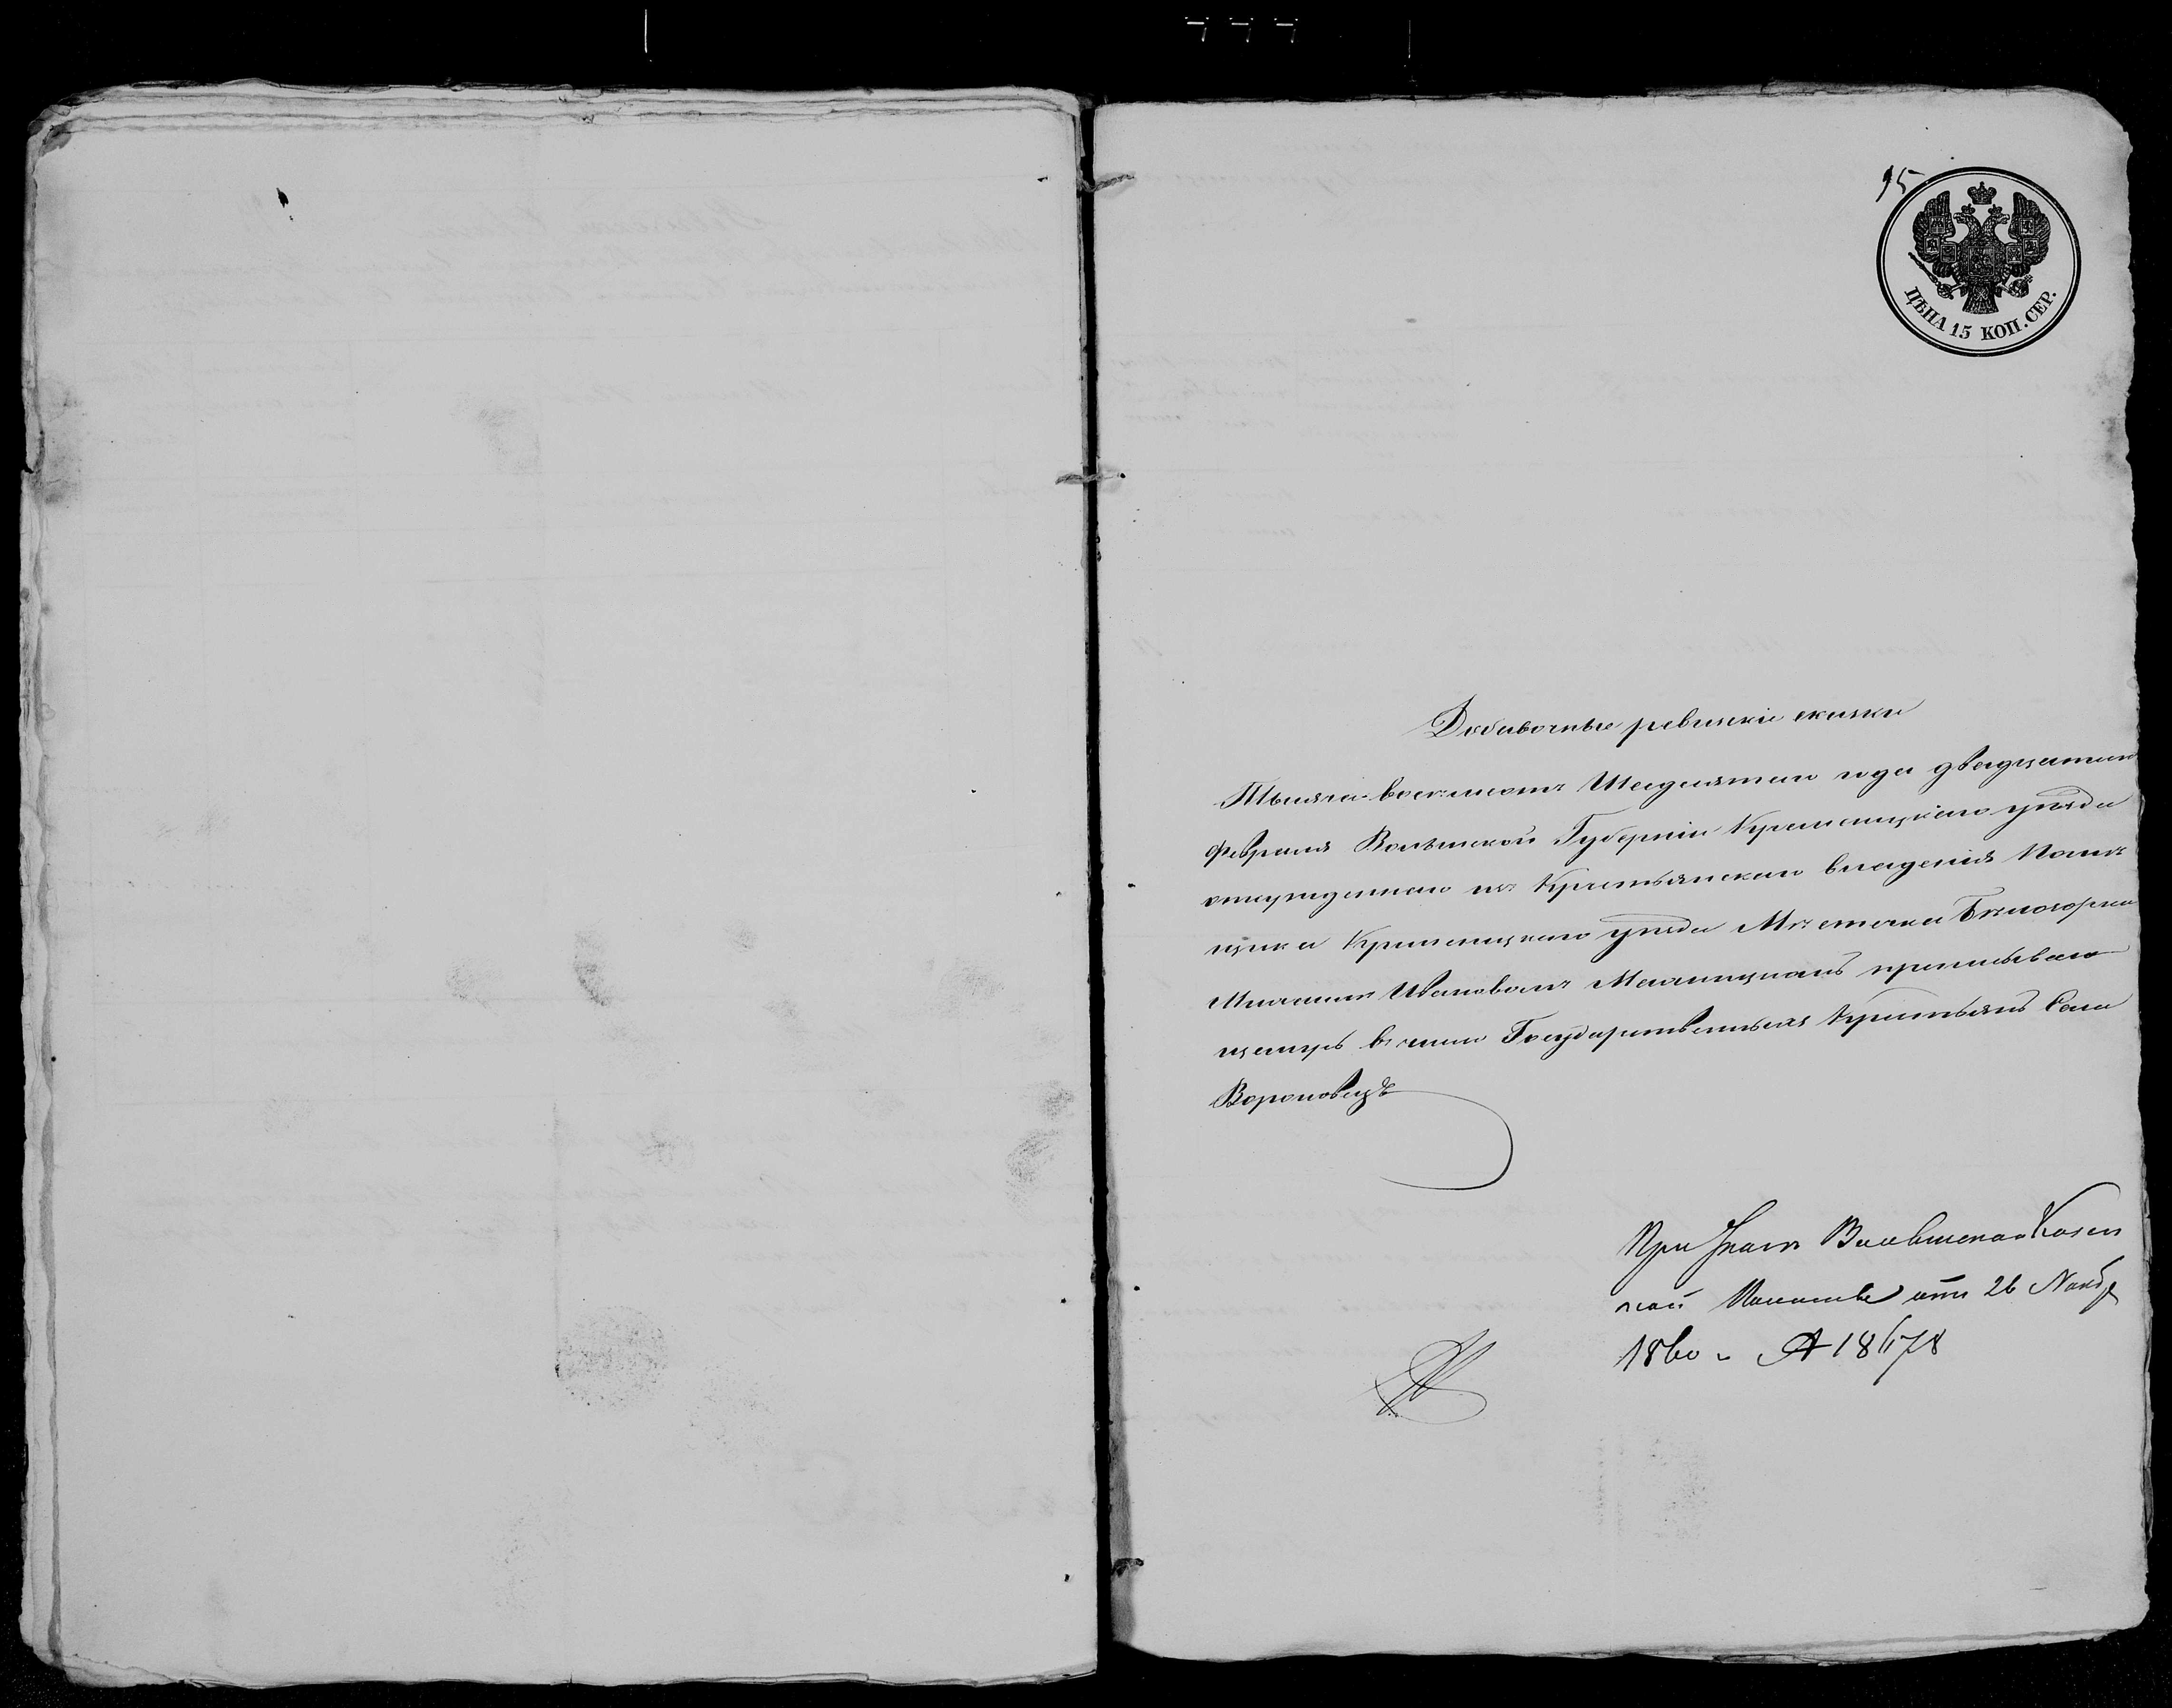 95
ЦѢНА 15 КОП. СЕР.
Добавочные ревизскіе сказки
Тысяча восемсотъ Шесдизятаго года двадцатаго
февраля Волынской Губерніи Кременецкаго уѣзда
отсужденнаго изъ Крестьянскаго владенія Помѣ
щика Кременецкаго уѣзда Мѣстечка Бѣлогорки
Ивановымъ приписываю
въ число Государственныхъ Крестьянъ Села
Вороновецъ
При Указѣ Волынской Казен
ной Палаты отъ 26 Нояб
1860 18678